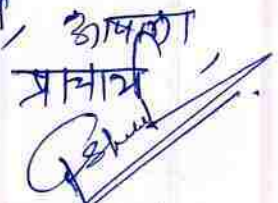 , आपका
प्राचार्य,